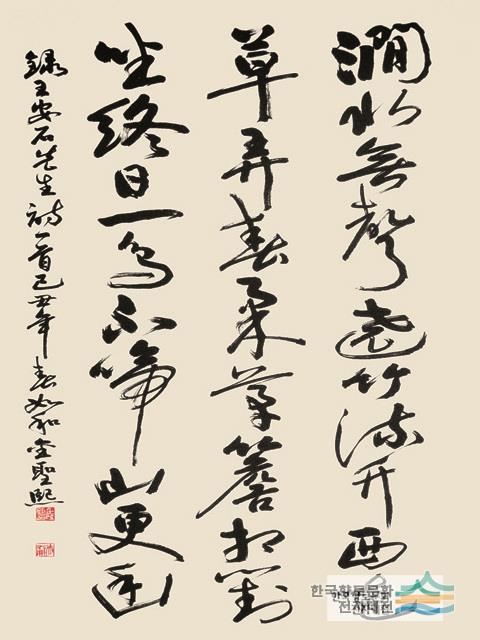 澗水無聲遶竹流竹西
草弄春柔茅簷相對
坐終日一鳥不啼山更幽
錄王安石先生詩一首己丑年春如和堂聖熙
한국향토문화
전자대전